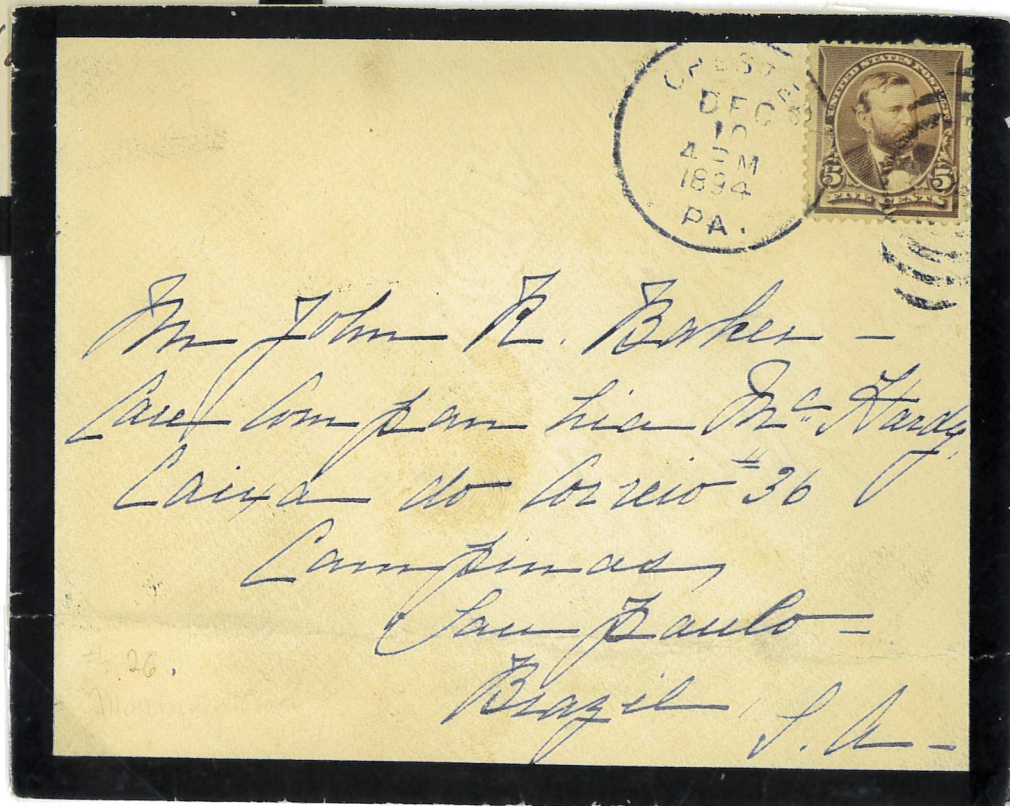 CHESTER
DEC
10
4 PM
1894
PA.
UNITED STATES POSTAGE
5 5
FIVE CENTS
Mr John R. Baker –
Care Companhia Mc Hardy,
Caixa do Correio # 36
Campinas,
Sau Paulo –
Brazil, S. A –
26.